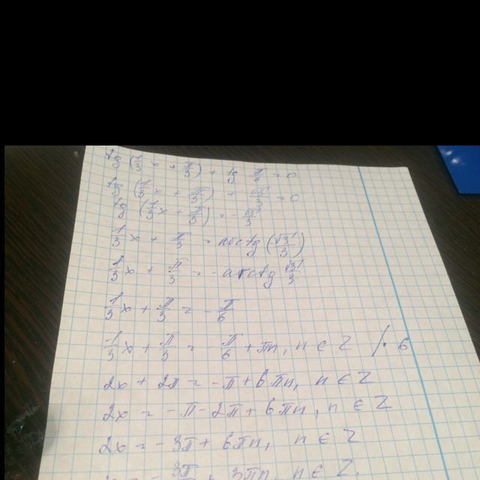 tg (1/3 x + π/3) + tg π/6 = 0
tg (1/3 x + π/3) + √3/3 = 0
tg (1/3 x + π/3) = - √3/3
1/3 x + π/3 = arctg (√3/3)
1/3 x + π/3 = - arctg √3/3
1/3 x + π/3 = - π/6
1/3 x + π/3 = - π/6 + πn, n ∈ Z /· 6
2x + 2π = - π + 6πn, n ∈ Z
2x = - π - 2π + 6πn, n ∈ Z
2x = - 3π + 6πn, n ∈ Z
x = - 3π/2 + 3πn, n ∈ Z.